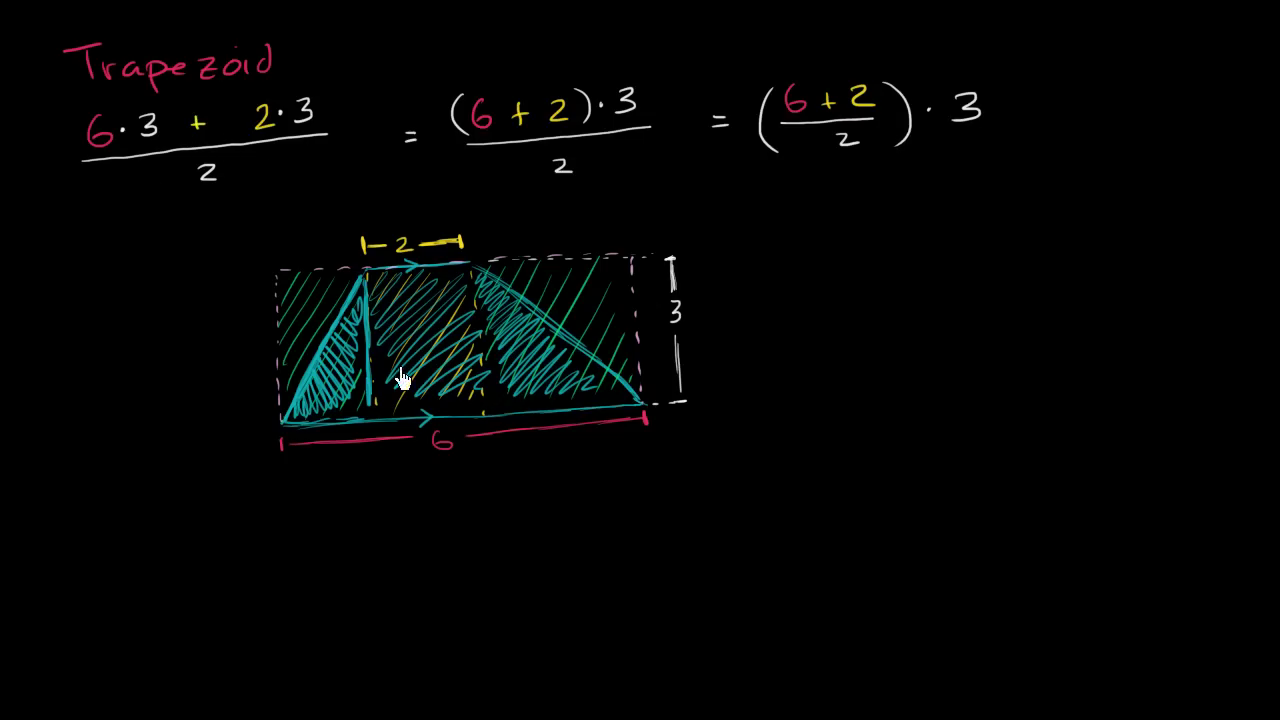 Trapezoid
(6·3 + 2·3)/2 = ((6 + 2)·3)/2 = ((6 + 2)/2) · 3
2
3
6